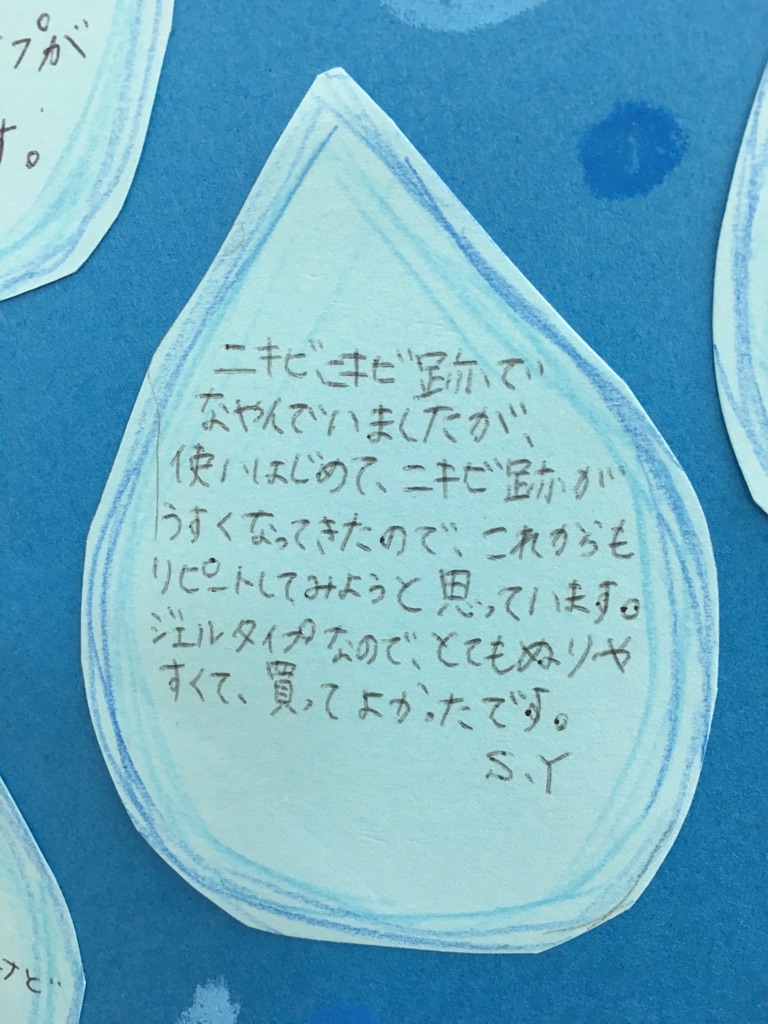 プが
す。
ニキビ、ニキビ跡で
なやんでいましたが、
使いはじめて、ニキビ跡が
うすくなってきたので、これからも
リピートしてみようと思っています。
ジェルタイプなので、とてもぬりや
すくて、買ってよかったです。
S.Y
けど